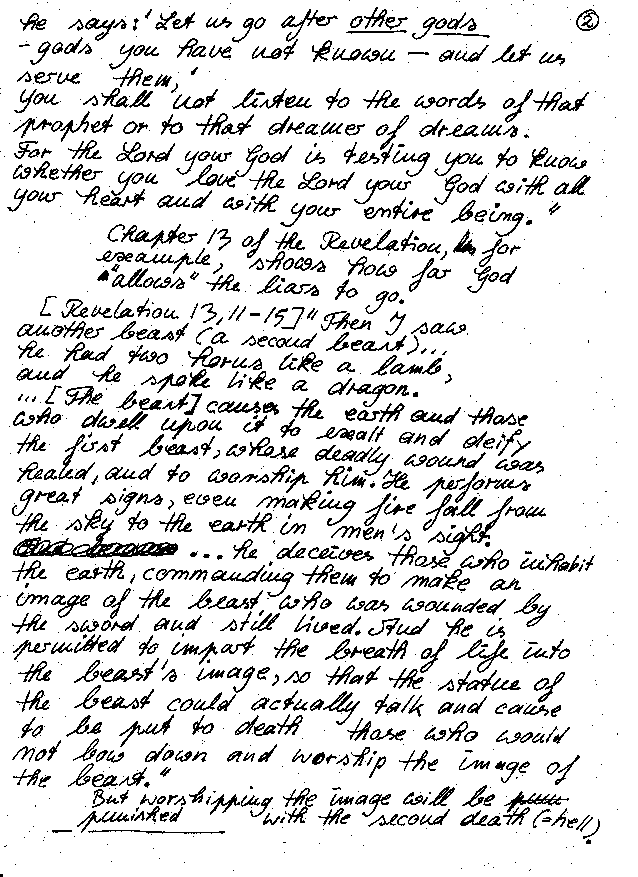 he says: 'Let us go after other gods ②
- gods you have not known — and let us
serve them,'
you shall not listen to the words of that
prophet or to that dreamer of dreams.
For the Lord your God is testing you to know
whether you love the Lord your God with all
your heart and with your entire being."
Chapter 13 of the Revelation, for
example, shows how far God
"allows" the liars to go.
[Revelation 13,11-15] "Then I saw
another beast (a second beast)...
he had two horns like a lamb,
and he spoke like a dragon.
... [The beast] causes the earth and those
who dwell upon it to exalt and deify
the first beast, whose deadly wound was
healed, and to worship him. He performs
great signs, even making fire fall from
the sky to the earth in men's sight.
... he deceives those who inhabit
the earth, commanding them to make an
image of the beast who was wounded by
the sword and still lived. And he is
permitted to impart the breath of life into
the beast's image, so that the statue of
the beast could actually talk and cause
to be put to death those who would
not bow down and worship the image of
the beast."
But worshipping the image will be
punished with the second death (=hell).